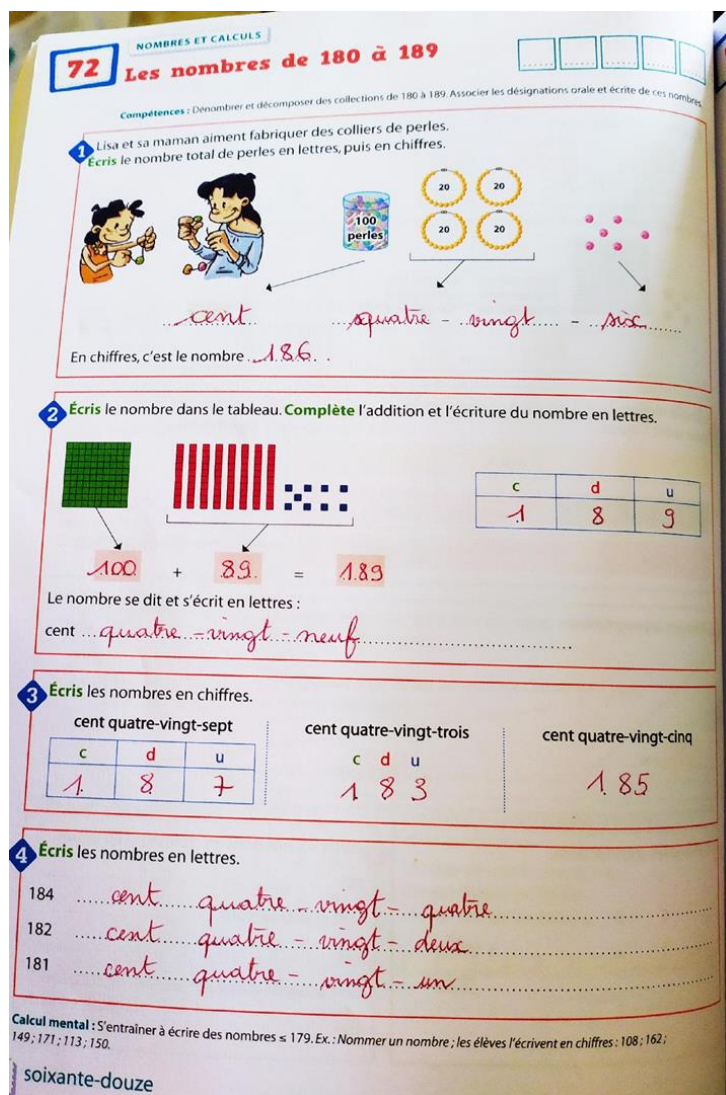 NOMBRES ET CALCULS
72 Les nombres de 180 à 189
Compétences : Dénombrer et décomposer des collections de 180 à 189. Associer les désignations orale et écrite de ces nombres.
1 Lisa et sa maman aiment fabriquer des colliers de perles.
Écris le nombre total de perles en lettres, puis en chiffres.
100 perles
20 20
20 20
cent quatre - vingt - six
En chiffres, c'est le nombre 186.
2 Écris le nombre dans le tableau. Complète l'addition et l'écriture du nombre en lettres.
c d u
1 8 9
100 + 89 = 189
Le nombre se dit et s'écrit en lettres :
cent quatre - vingt - neuf
3 Écris les nombres en chiffres.
cent quatre-vingt-sept cent quatre-vingt-trois cent quatre-vingt-cinq
c d u c d u
1 8 7 1 8 3 185
4 Écris les nombres en lettres.
184 cent quatre - vingt - quatre
182 cent quatre - vingt - deux
181 cent quatre - vingt - un
Calcul mental : S'entraîner à écrire des nombres ≤ 179. Ex. : Nommer un nombre ; les élèves l'écrivent en chiffres : 108 ; 162 ;
149 ; 171 ; 113 ; 150.
soixante-douze